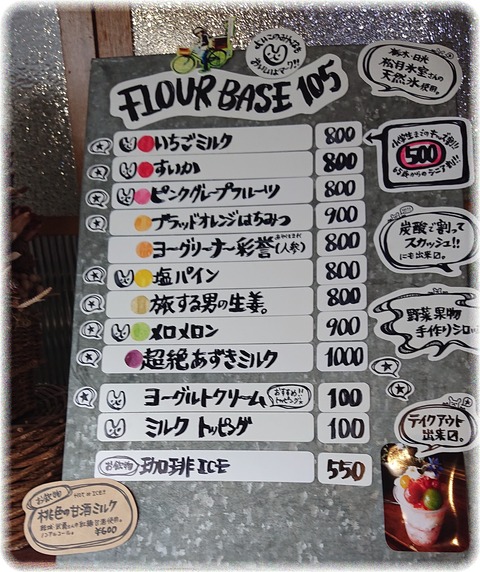 よいこのみんなも
おいしいよマーク!!
FLOUR BASE 105
栃木・日光
松月氷室さんの
天然氷使用。
いちごミルク 800
すいか 800
ピンクグレープフルーツ 800
ブラッドオレンジはちみつ 900
ヨーグリーナー彩誉(人参) 800
塩パイン 800
旅する男の生姜。 800
メロメロン 900
超絶あずきミルク 1000
ヨーグルトクリーム おすすめ!! トッピング 100
ミルク トッピング 100
お飲物 珈琲 ICE 550
小学生までのキッズ割!!
500
65才からのシニア割!!
炭酸で割って
スカッシュ!!
にも出来〼。
野菜果物
手作りシロ
テイクアウト
出来〼。
お飲物 HOT or ICE?
桃色の甘酒ミルク
ノンアルコール。 ¥600